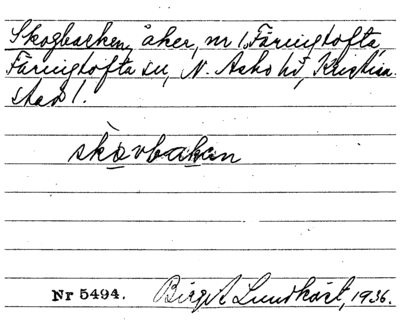 Skogbacken, åker, nr 1, Färingtofta,
Färingtofta sn, N. Åsbo hd, Kristian-
stad l.
skåvbakən
Nr 5494. Birgit Lundkvist, 1936.